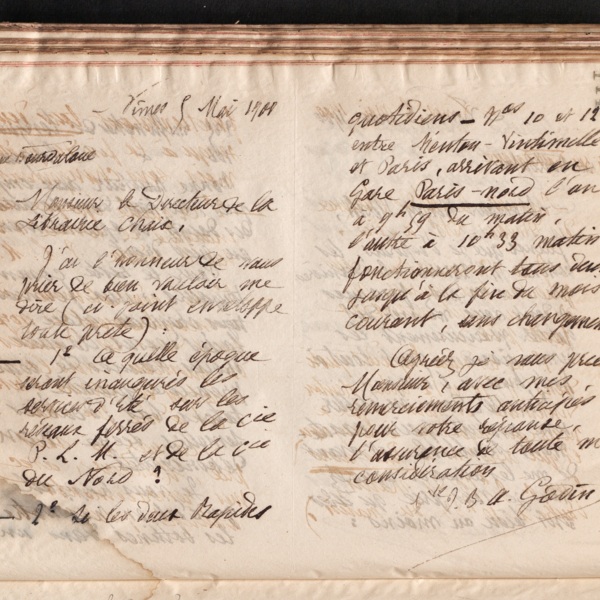 Nîmes 5 Mai 1900
Bourdaloue
Monsieur le Directeur de la
Librairie Chaix,
J'ai l'honneur de vous
prier de bien vouloir me
dire (ci-joint enveloppe
toute prête) :
1º à quelle époque
seront inaugurés les
services d'Eté sur les
réseaux ferrés de la Cie
P. L. M. et de la Cie
du Nord ?
2º si les deux Rapides
quotidiens – Nos 10 et 12
entre Menton-Vintimille
et Paris, arrivant en
Gare Paris-nord l'un
à 9h59 du matin,
l'autre à 10h33 matin
fonctionneront tous deux
jusqu'à la fin du mois
courant, sans changement
Agréez, je vous prie
Monsieur, avec mes
remerciements anticipés
pour votre réponse,
l'assurance de toute ma
considération
Vve J. B. A. Godin